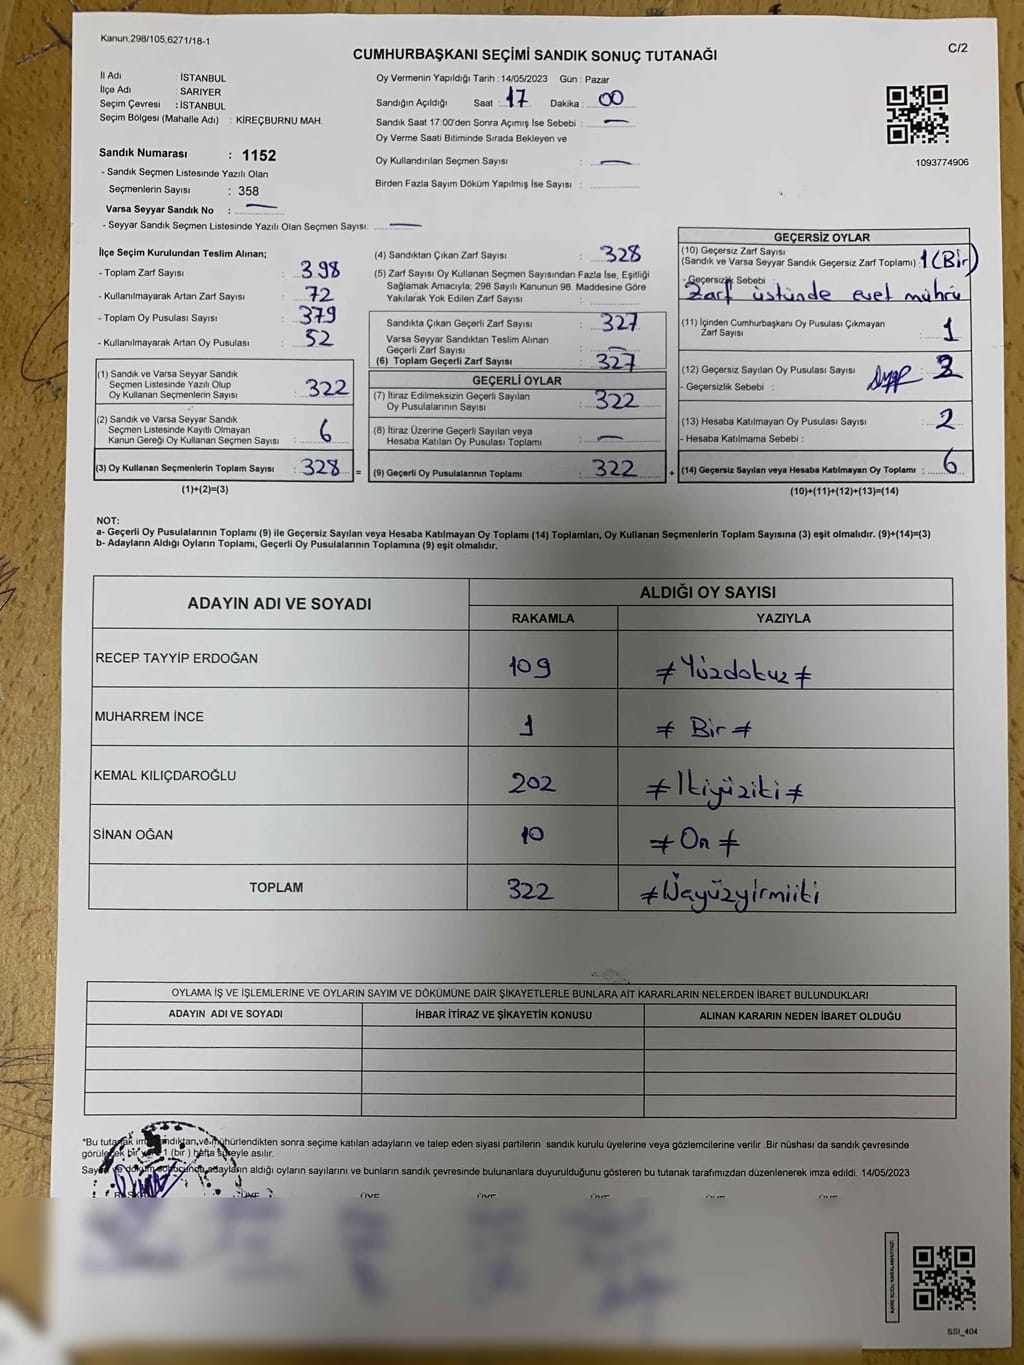 Kanun,298/105,6271/18-1
C/2
CUMHURBAŞKANI SEÇİMİ SANDIK SONUÇ TUTANAĞI
İl Adı : İSTANBUL
İlçe Adı : SARIYER
Seçim Çevresi : İSTANBUL
Seçim Bölgesi (Mahalle Adı) : KİREÇBURNU MAH.
Sandık Numarası : 1152
- Sandık Seçmen Listesinde Yazılı Olan
Seçmenlerin Sayısı : 358
Varsa Seyyar Sandık No :
- Seyyar Sandık Seçmen Listesinde Yazılı Olan Seçmen Sayısı:
Oy Vermenin Yapıldığı Tarih : 14/05/2023 Gün : Pazar
Sandığın Açıldığı Saat : 17 Dakika : 00
Sandık Saat 17:00'den Sonra Açımış İse Sebebi :
Oy Verme Saati Bitiminde Sırada Bekleyen ve
Oy Kullandırılan Seçmen Sayısı :
Birden Fazla Sayım Döküm Yapılmış İse Sayısı :
1093774906
İlçe Seçim Kurulundan Teslim Alınan;
- Toplam Zarf Sayısı : 398
- Kullanılmayarak Artan Zarf Sayısı : 72
- Toplam Oy Pusulası Sayısı : 379
- Kullanılmayarak Artan Oy Pusulası : 52
(1) Sandık ve Varsa Seyyar Sandık
Seçmen Listesinde Yazılı Olup
Oy Kullanan Seçmenlerin Sayısı : 322
(2) Sandık ve Varsa Seyyar Sandık
Seçmen Listesinde Kayıtlı Olmayan
Kanun Gereği Oy Kullanan Seçmen Sayısı : 6
(3) Oy Kullanan Seçmenlerin Toplam Sayısı : 328 =
(1)+(2)=(3)
(4) Sandıktan Çıkan Zarf Sayısı : 328
(5) Zarf Sayısı Oy Kullanan Seçmen Sayısından Fazla İse, Eşitliği
Sağlamak Amacıyla; 298 Sayılı Kanunun 98. Maddesine Göre
Yakılarak Yok Edilen Zarf Sayısı :
Sandıkta Çıkan Geçerli Zarf Sayısı : 327
Varsa Seyyar Sandıktan Teslim Alınan
Geçerli Zarf Sayısı :
(6) Toplam Geçerli Zarf Sayısı : 327
GEÇERLİ OYLAR
(7) İtiraz Edilmeksizin Geçerli Sayılan
Oy Pusulalarının Sayısı : 322
(8) İtiraz Üzerine Geçerli Sayılan veya
Hesaba Katılan Oy Pusulası Toplamı :
(9) Geçerli Oy Pusulalarının Toplamı : 322 +
GEÇERSİZ OYLAR
(10) Geçersiz Zarf Sayısı
(Sandık ve Varsa Seyyar Sandık Geçersiz Zarf Toplamı) : 1 (Bir)
- Geçersizlik Sebebi :
Zarf üstünde evet mührü
(11) İçinden Cumhurbaşkanı Oy Pusulası Çıkmayan
Zarf Sayısı : 1
(12) Geçersiz Sayılan Oy Pusulası Sayısı :
- Geçersizlik Sebebi :
(13) Hesaba Katılmayan Oy Pusulası Sayısı : 2
- Hesaba Katılmama Sebebi :
(14) Geçersiz Sayılan veya Hesaba Katılmayan Oy Toplamı : 6
(10)+(11)+(12)+(13)=(14)
NOT:
a- Geçerli Oy Pusulalarının Toplamı (9) ile Geçersiz Sayılan veya Hesaba Katılmayan Oy Toplamı (14) Toplamları, Oy Kullanan Seçmenlerin Toplam Sayısına (3) eşit olmalıdır. (9)+(14)=(3)
b- Adayların Aldığı Oyların Toplamı, Geçerli Oy Pusulalarının Toplamına (9) eşit olmalıdır.
ADAYIN ADI VE SOYADI
ALDIĞI OY SAYISI
RAKAMLA YAZIYLA
RECEP TAYYİP ERDOĞAN 109 ≠ Yüzdokuz ≠
MUHARREM İNCE 1 ≠ Bir ≠
KEMAL KILIÇDAROĞLU 202 ≠ İkiyüziki ≠
SİNAN OĞAN 10 ≠ On ≠
TOPLAM 322 ≠ Üçyüzyirmiiki
OYLAMA İŞ VE İŞLEMLERİNE VE OYLARIN SAYIM VE DÖKÜMÜNE DAİR ŞİKAYETLERLE BUNLARA AİT KARARLARIN NELERDEN İBARET BULUNDUKLARI
ADAYIN ADI VE SOYADI İHBAR İTİRAZ VE ŞİKAYETİN KONUSU ALINAN KARARIN NEDEN İBARET OLDUĞU
*Bu tutanak sonra seçime katılan adayların ve talep eden siyasi partilerin sandık kurulu üyelerine veya gözlemcilerine verilir .Bir nüshası da sandık çevresinde
görülecek bir yere 1 (bir ) hafta süreyle asılır.
aldığı oyların sayılarını ve bunların sandık çevresinde bulunanlara duyurulduğunu gösteren bu tutanak tarafımızdan düzenlenerek imza edildi. 14/05/2023
ÜYE ÜYE ÜYE ÜYE ÜYE ÜYE
KARE KODU KARALAMAYINIZ!
SSI_404